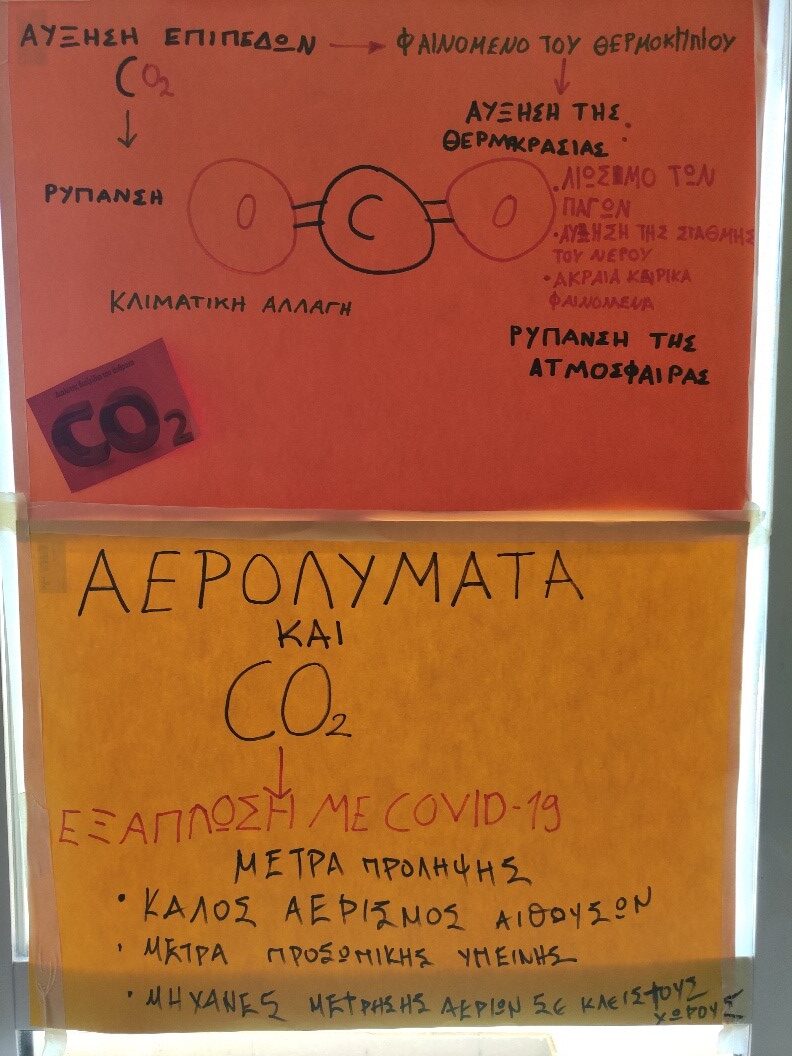 ΑΥΞΗΣΗ ΕΠΙΠΕΔΩΝ → ΦΑΙΝΟΜΕΝΟ ΤΟΥ ΘΕΡΜΟΚΗΠΙΟΥ
CO2
ΑΥΞΗΣΗ ΤΗΣ
ΘΕΡΜΟΚΡΑΣΙΑΣ:
ΡΥΠΑΝΣΗ
O=C=O
• ΛΙΩΣΙΜΟ ΤΩΝ
ΠΑΓΩΝ
• ΑΥΞΗΣΗ ΤΗΣ ΣΤΑΘΜΗΣ
ΤΟΥ ΝΕΡΟΥ
• ΑΚΡΑΙΑ ΚΑΙΡΙΚΑ
ΦΑΙΝΟΜΕΝΑ
ΚΛΙΜΑΤΙΚΗ ΑΛΛΑΓΗ
ΡΥΠΑΝΣΗ ΤΗΣ
ΑΤΜΟΣΦΑΙΡΑΣ
CO2
ΑΕΡΟΛΥΜΑΤΑ
ΚΑΙ
CO2
ΕΞΑΠΛΩΣΗ ΜΕ COVID-19
ΜΕΤΡΑ ΠΡΟΛΗΨΗΣ
• ΚΑΛΟΣ ΑΕΡΙΣΜΟΣ ΑΙΘΟΥΣΩΝ
• ΜΕΤΡΑ ΠΡΟΣΩΜΙΚΗΣ ΥΜΕΙΝΗΣ
• ΜΗΧΑΝΕΣ ΜΕΤΡΗΣΗΣ ΑΕΡΙΩΝ ΣΕ ΚΛΕΙΣΤΟΥΣ
ΧΩΡΟΥΣ